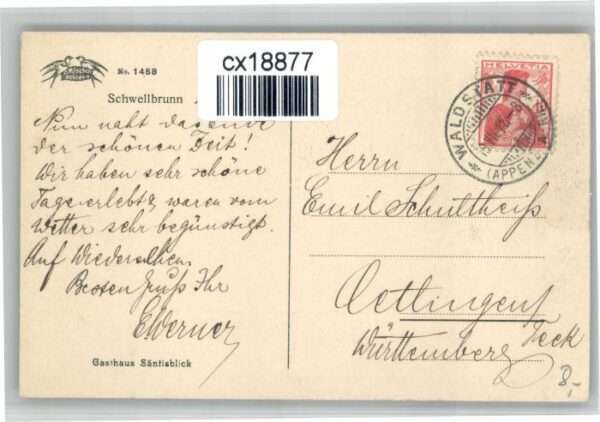 No. 1488
cx18877
Schwellbrunn
Nun naht das Ende
der schönen Zeit!
Wir haben sehr schöne
Tage erlebt, waren vom
Wetter sehr begünstigt.
Auf Wiedersehen.
Besten Gruß Ihr
EWerner
Gasthaus Säntisblick
HELVETIA
WALDSTATT
(APPENZ
Herrn
Emil Schultheiß
Oettlingen
Teck
Württemberg
8,-